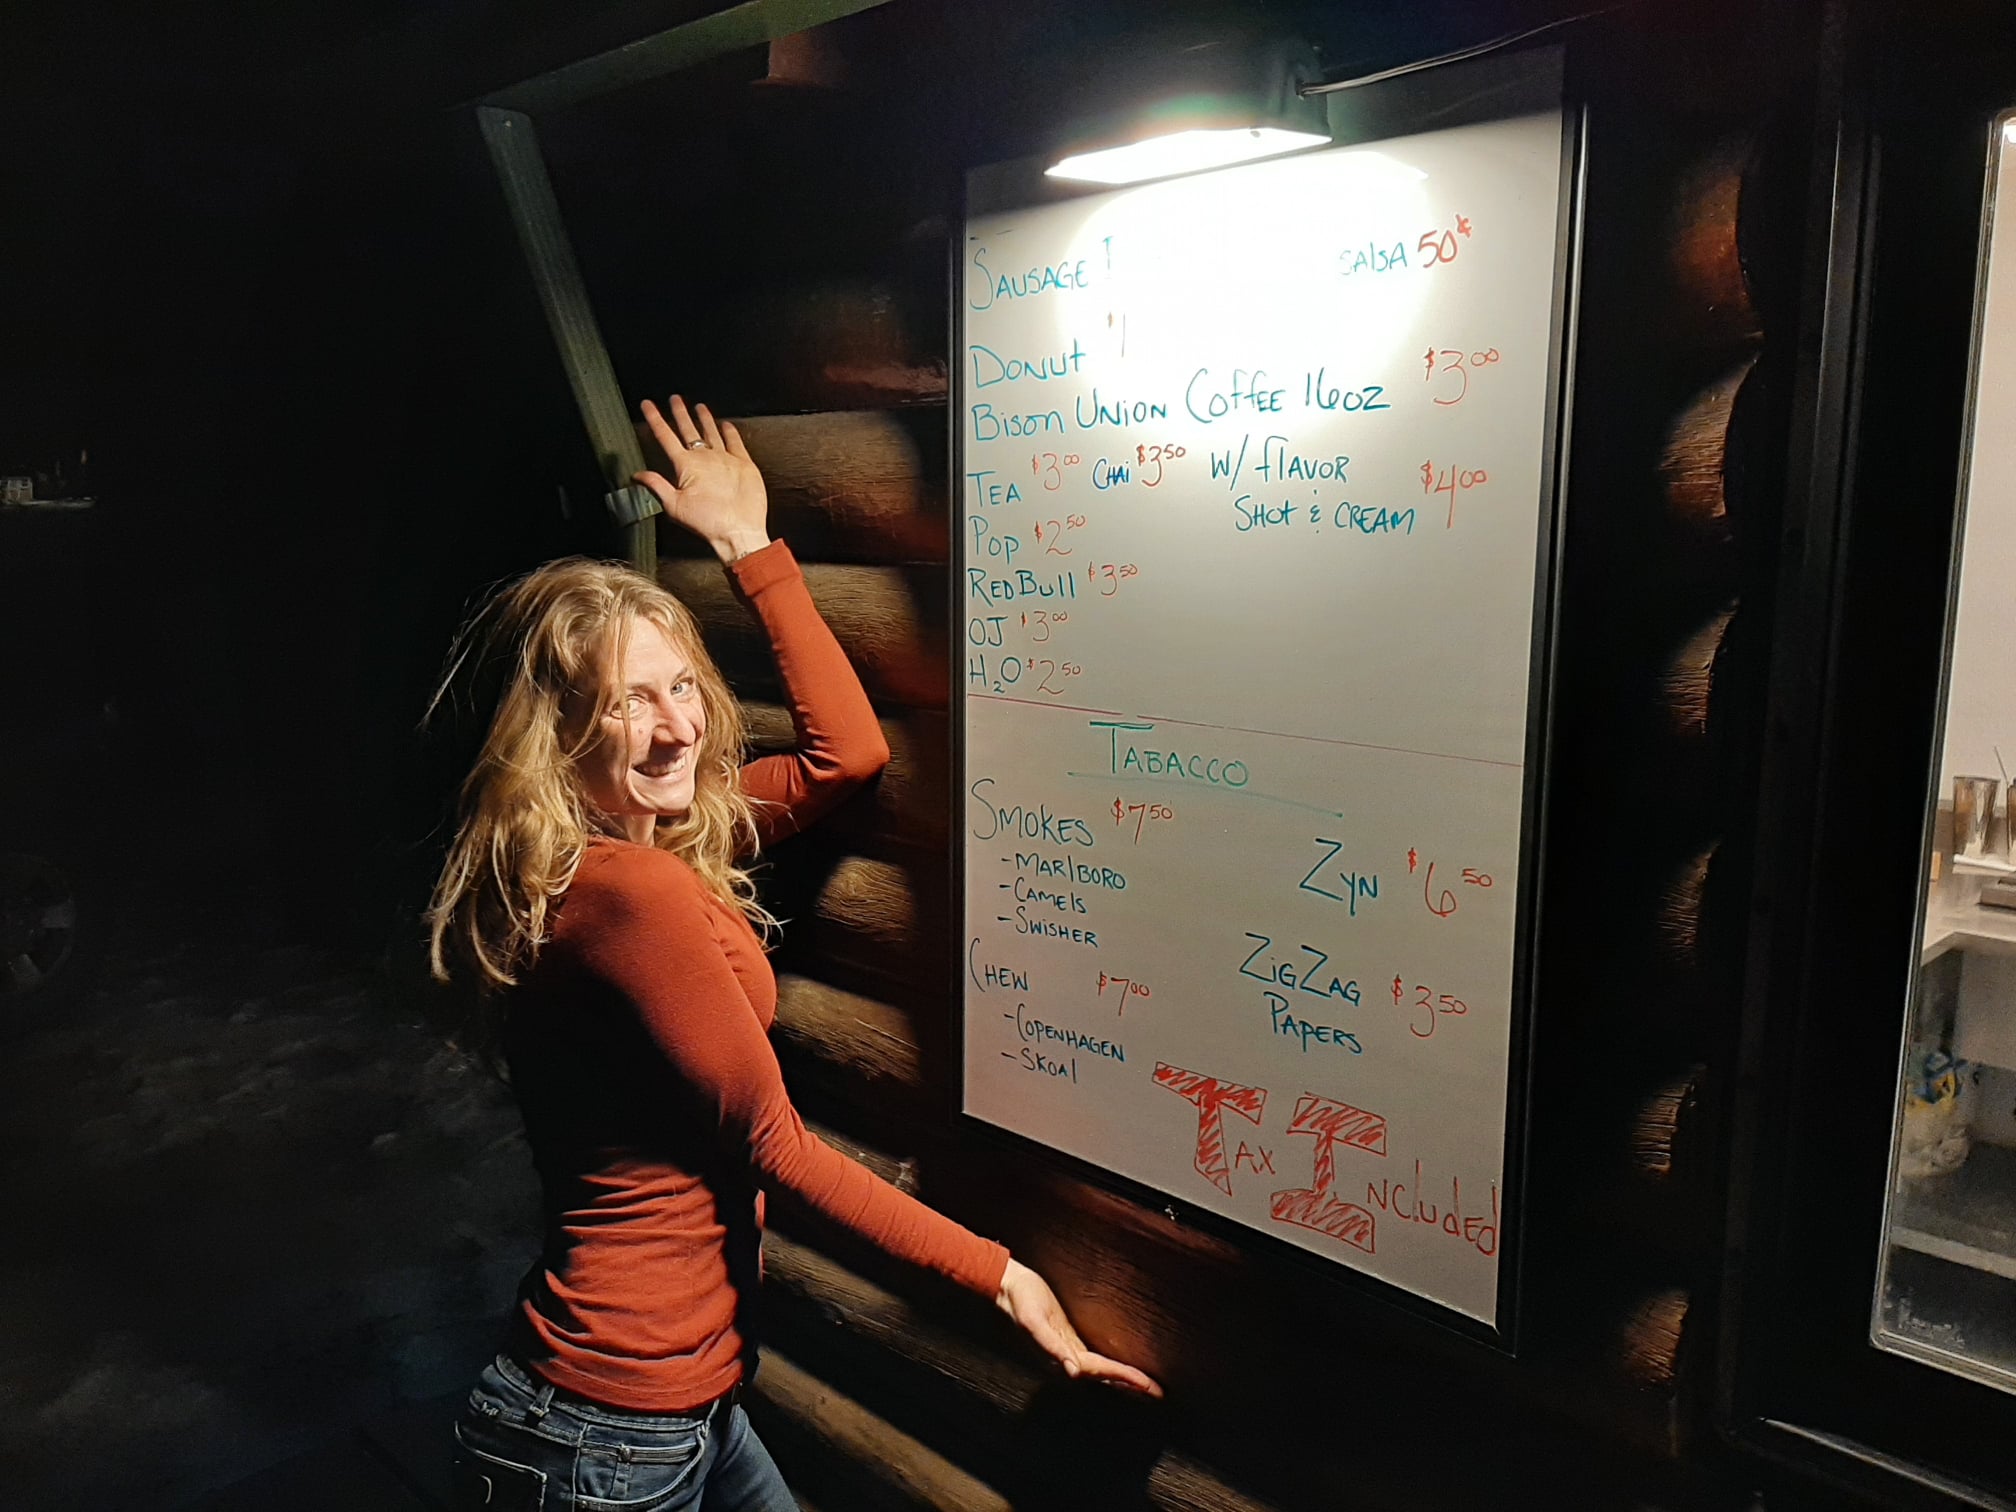 SAUSAGE SAlSA 50¢
DONUt $1
BISON UNION COffEE 16OZ $3.00
TEA $3.00 CHAI $3.50 W/ flAVOR $4.00
SHOt & CREAM
POP $2.50
REDBUll $3.50
OJ $3.00
H2O $2.50
TABACCO
SMOKES $7.50
-MARlBORO
-CAMEls
-SWISHER
CHEW $7.00
-COPENHAGEN
-SKOAl
ZYN $6.50
ZIGZAG $3.50
PAPERS
TAX INClUdEd